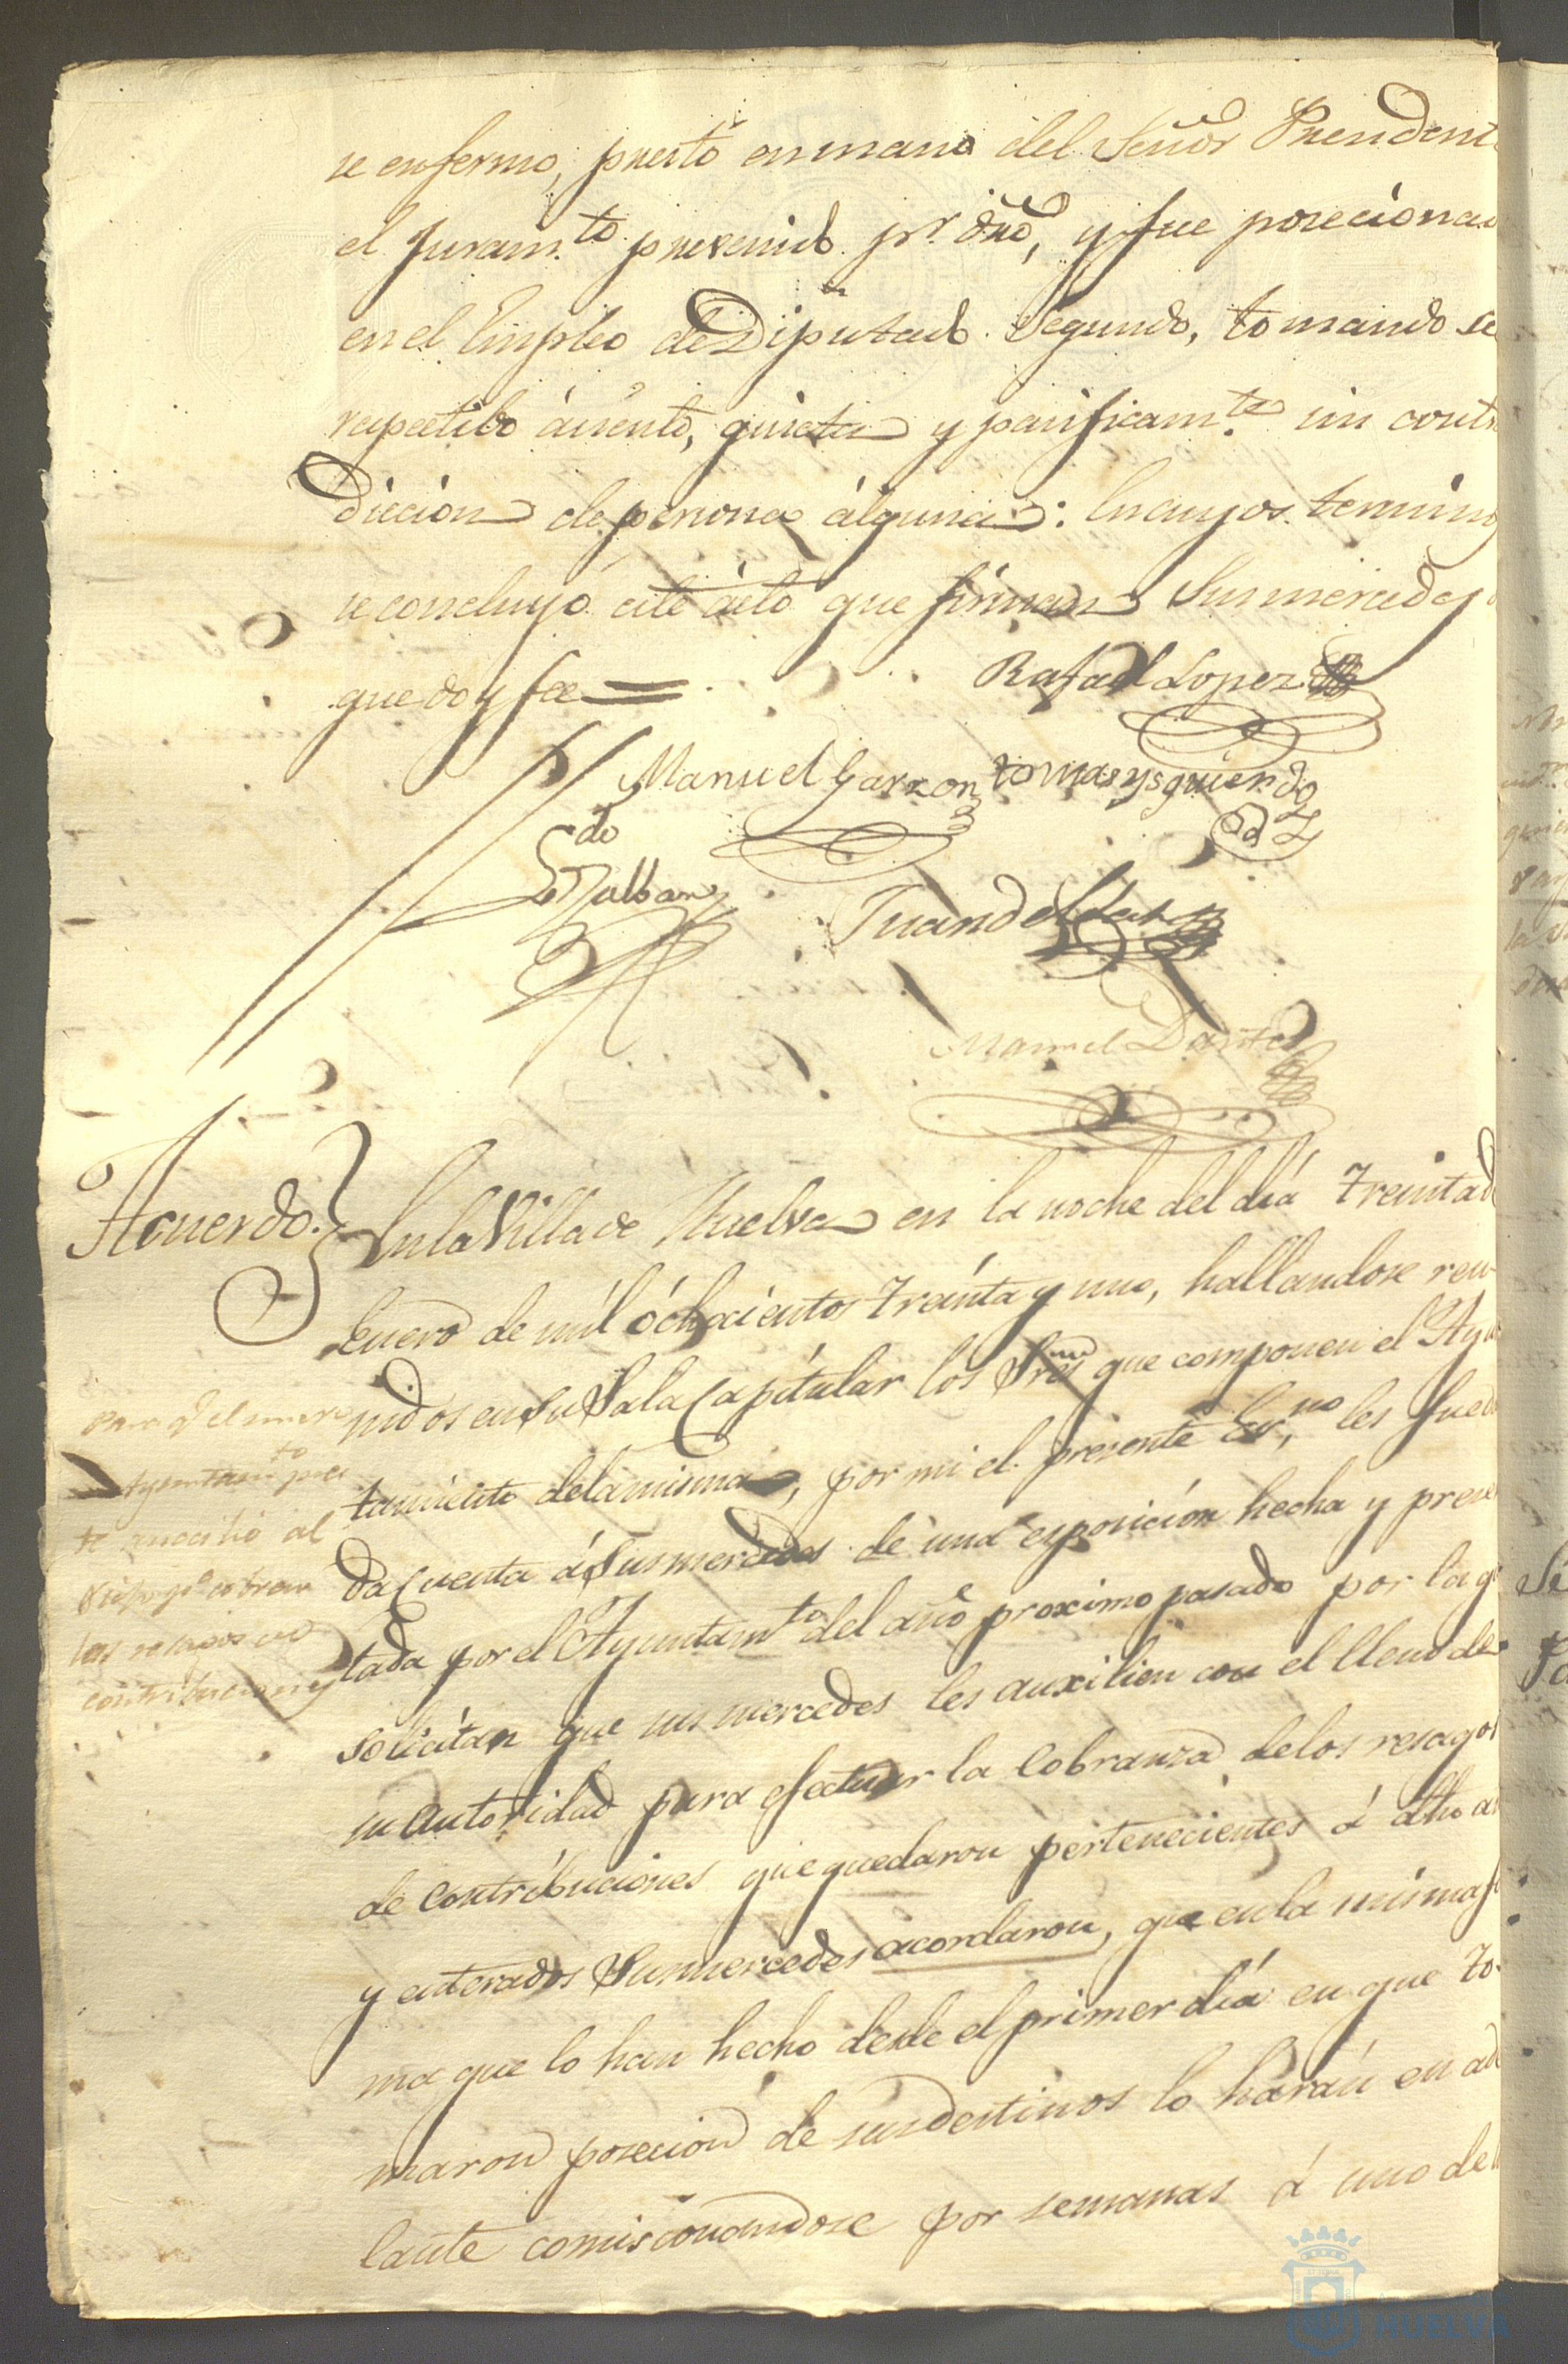 se enfermo, puesto enmano del Señor Precident
el Juram.to prevenido p.r dro, y fue posecionad
enel Empleo deDiputado Segundo, tomando su
respectibo ásiento, quieta y pasificam.te sin contra
Diccion depersona álguna: Encuyos termino
se concluyó este ácto que firman Susmercedes,
que doy fee =
Rafael Lopez
Manuel Garzon
tomas ysquierdo
Ldo
Juan del
Manuel
Acuerdo.
En la Villa de Huelva en la noche del dia treinta de
Enero de mil óchocientos treinta y uno, hallandose reu-
nidos en su Sala Capitular los Sres que componen el Ayun
tamiento dela misma, por mi el presente Es.no les fue da
da Cuenta á Susmercedes de una esposición hecha y presen
tada por el Ayuntam.to del año proximo pasado por la q.e
solicitan que sus mercedes les auxilien con el lleno de
su Autoridad para efectuar la Cobranza delos resagos
de Contribuciones que quedaron pertenecientes á dho añ
y enterados Susmercedes acordaron, que en la misma for
ma que lo han hecho desde el primer dia en que to-
maron posecion de sus destinos lo harán en ade
lante comisionandose por semanas á uno de l
Ayuntam.to
al
cobrar
los resagos de
contribuciones
HUELVA